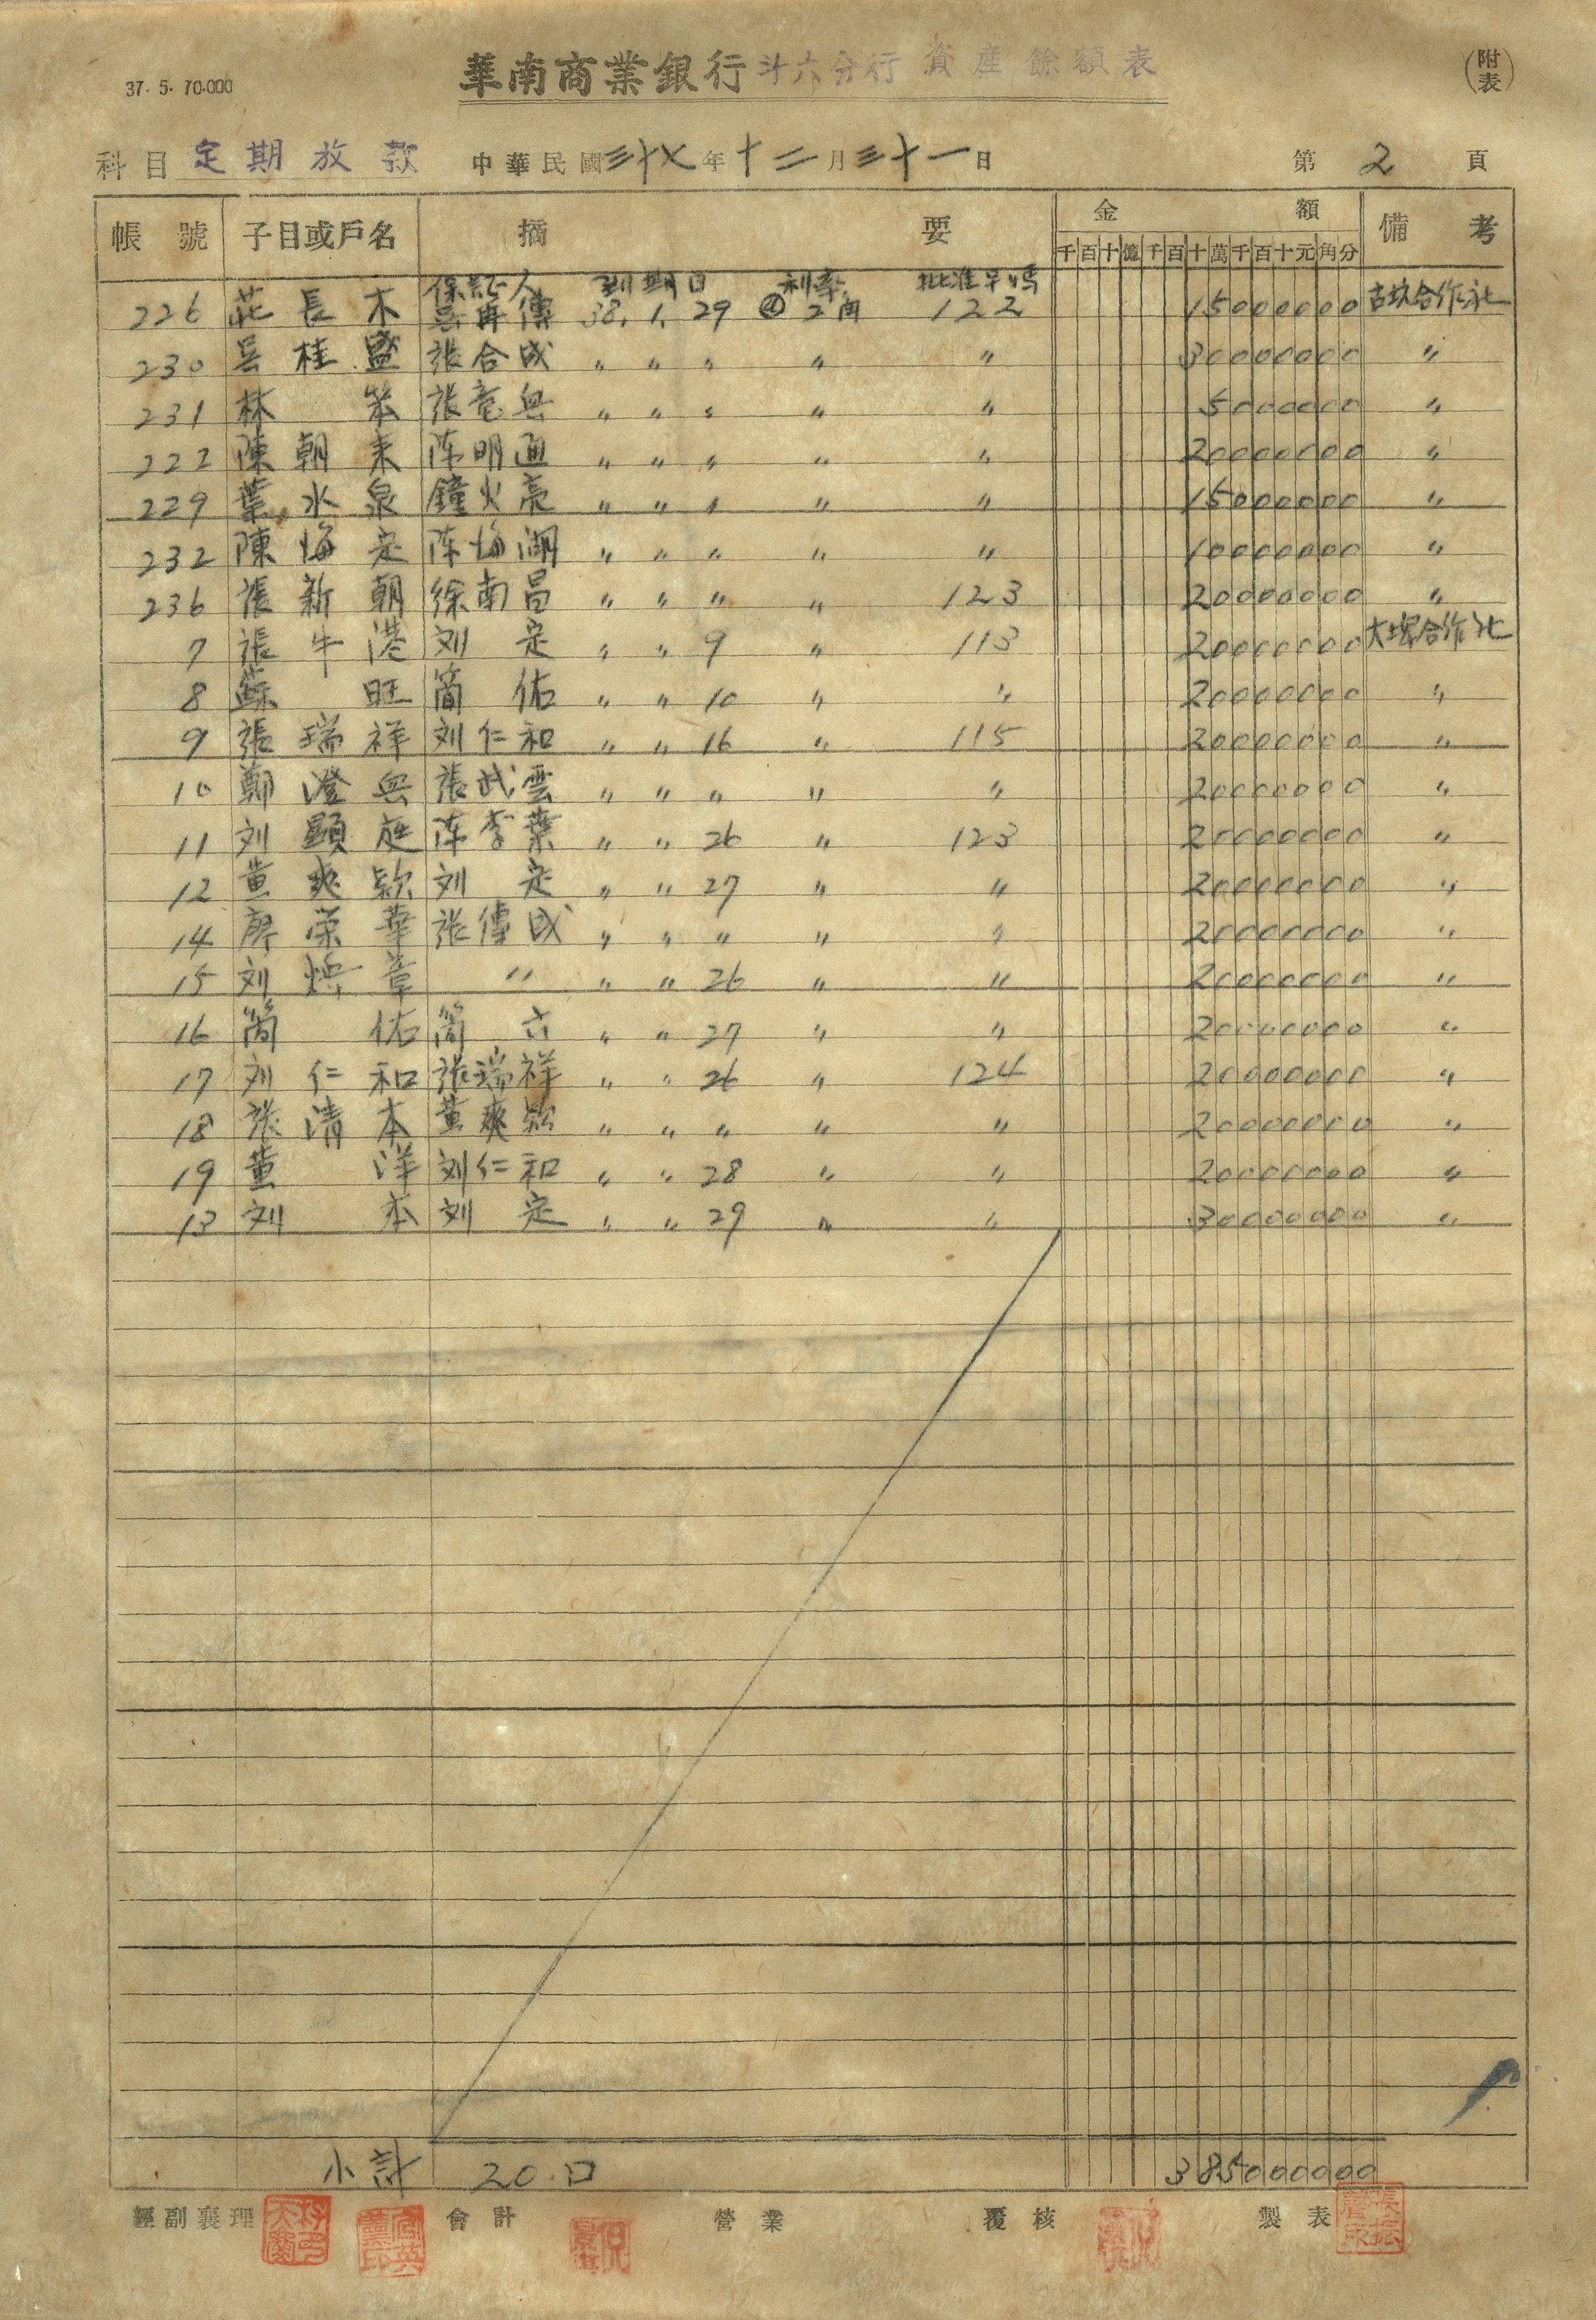 37. 5. 70.000
華南商業銀行斗六分行資產餘額表
(附表)
科目 定期放款 中華民國三十七年十二月三十一日 第 2 頁
帳號 子目或戶名 摘要 金額 備考
千百十億千百十萬千百十元角分
保証人 到期日 利率 批准号碼
226 莊長木 吳再傳 38. 1. 29 ④ 2角 122 15000000 古坑合作社
230 吳桂盛 張合成 〃 〃 〃 〃 〃 30000000 〃
231 林 笨 張竜興 〃 〃 〃 〃 〃 5000000 〃
222 陳朝来 陈明通 〃 〃 〃 〃 〃 20000000 〃
229 葉水泉 鐘火亮 〃 〃 〃 〃 〃 15000000 〃
232 陳海定 陈海湖 〃 〃 〃 〃 〃 10000000 〃
236 張新朝 徐南昌 〃 〃 〃 〃 123 20000000 〃
7 張牛港 刘 定 〃 〃 9 〃 113 20000000 大埤合作社
8 蘇 旺 简 佑 〃 〃 10 〃 〃 20000000 〃
9 張瑞祥 刘仁和 〃 〃 16 〃 115 20000000 〃
10 鄭澄興 張武雲 〃 〃 〃 〃 〃 20000000 〃
11 刘顕庭 陈李葉 〃 〃 26 〃 123 20000000 〃
12 黄爽欵 刘 定 〃 〃 27 〃 〃 20000000 〃
14 廖荣華 張傳成 〃 〃 〃 〃 〃 20000000 〃
15 刘焕章 〃 〃 〃 26 〃 〃 20000000 〃
16 简 佑 简 六 〃 〃 27 〃 〃 20000000 〃
17 刘仁和 張瑞祥 〃 〃 26 〃 124 20000000 〃
18 張清本 黄爽欵 〃 〃 〃 〃 〃 20000000 〃
19 董 洋 刘仁和 〃 〃 28 〃 〃 20000000 〃
13 刘 本 刘 定 〃 〃 29 〃 〃 30000000 〃
小計 20.口 385000000
經副襄理 會計 營業 覆核 製表